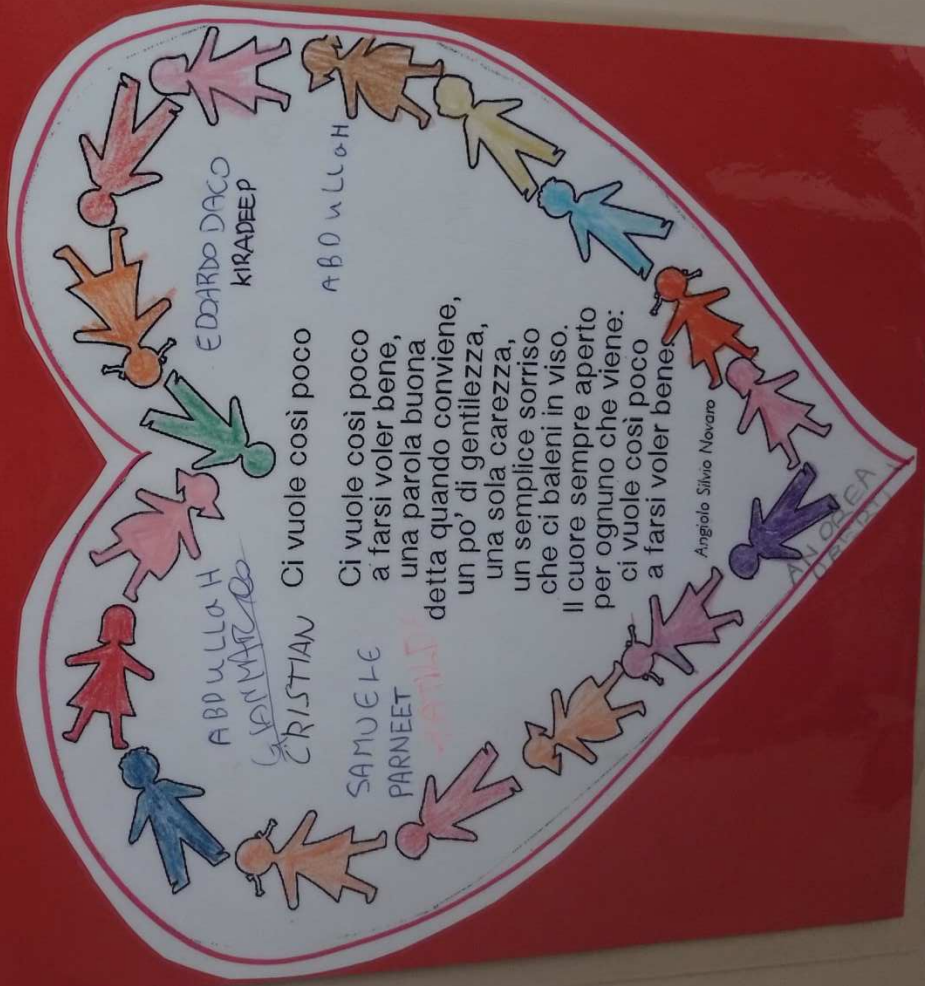 ABDULLAH
GIANMARCO
CRISTIAN
SAMUELE
PARNEET
EDOARDO DACO
KIRADEEP
ABDULLAH
Ci vuole così poco
Ci vuole così poco
a farsi voler bene,
una parola buona
detta quando conviene,
un po' di gentilezza,
una sola carezza,
un semplice sorriso
che ci baleni in viso.
Il cuore sempre aperto
per ognuno che viene:
ci vuole così poco
a farsi voler bene.
Angiolo Silvio Novaro
ANDREA